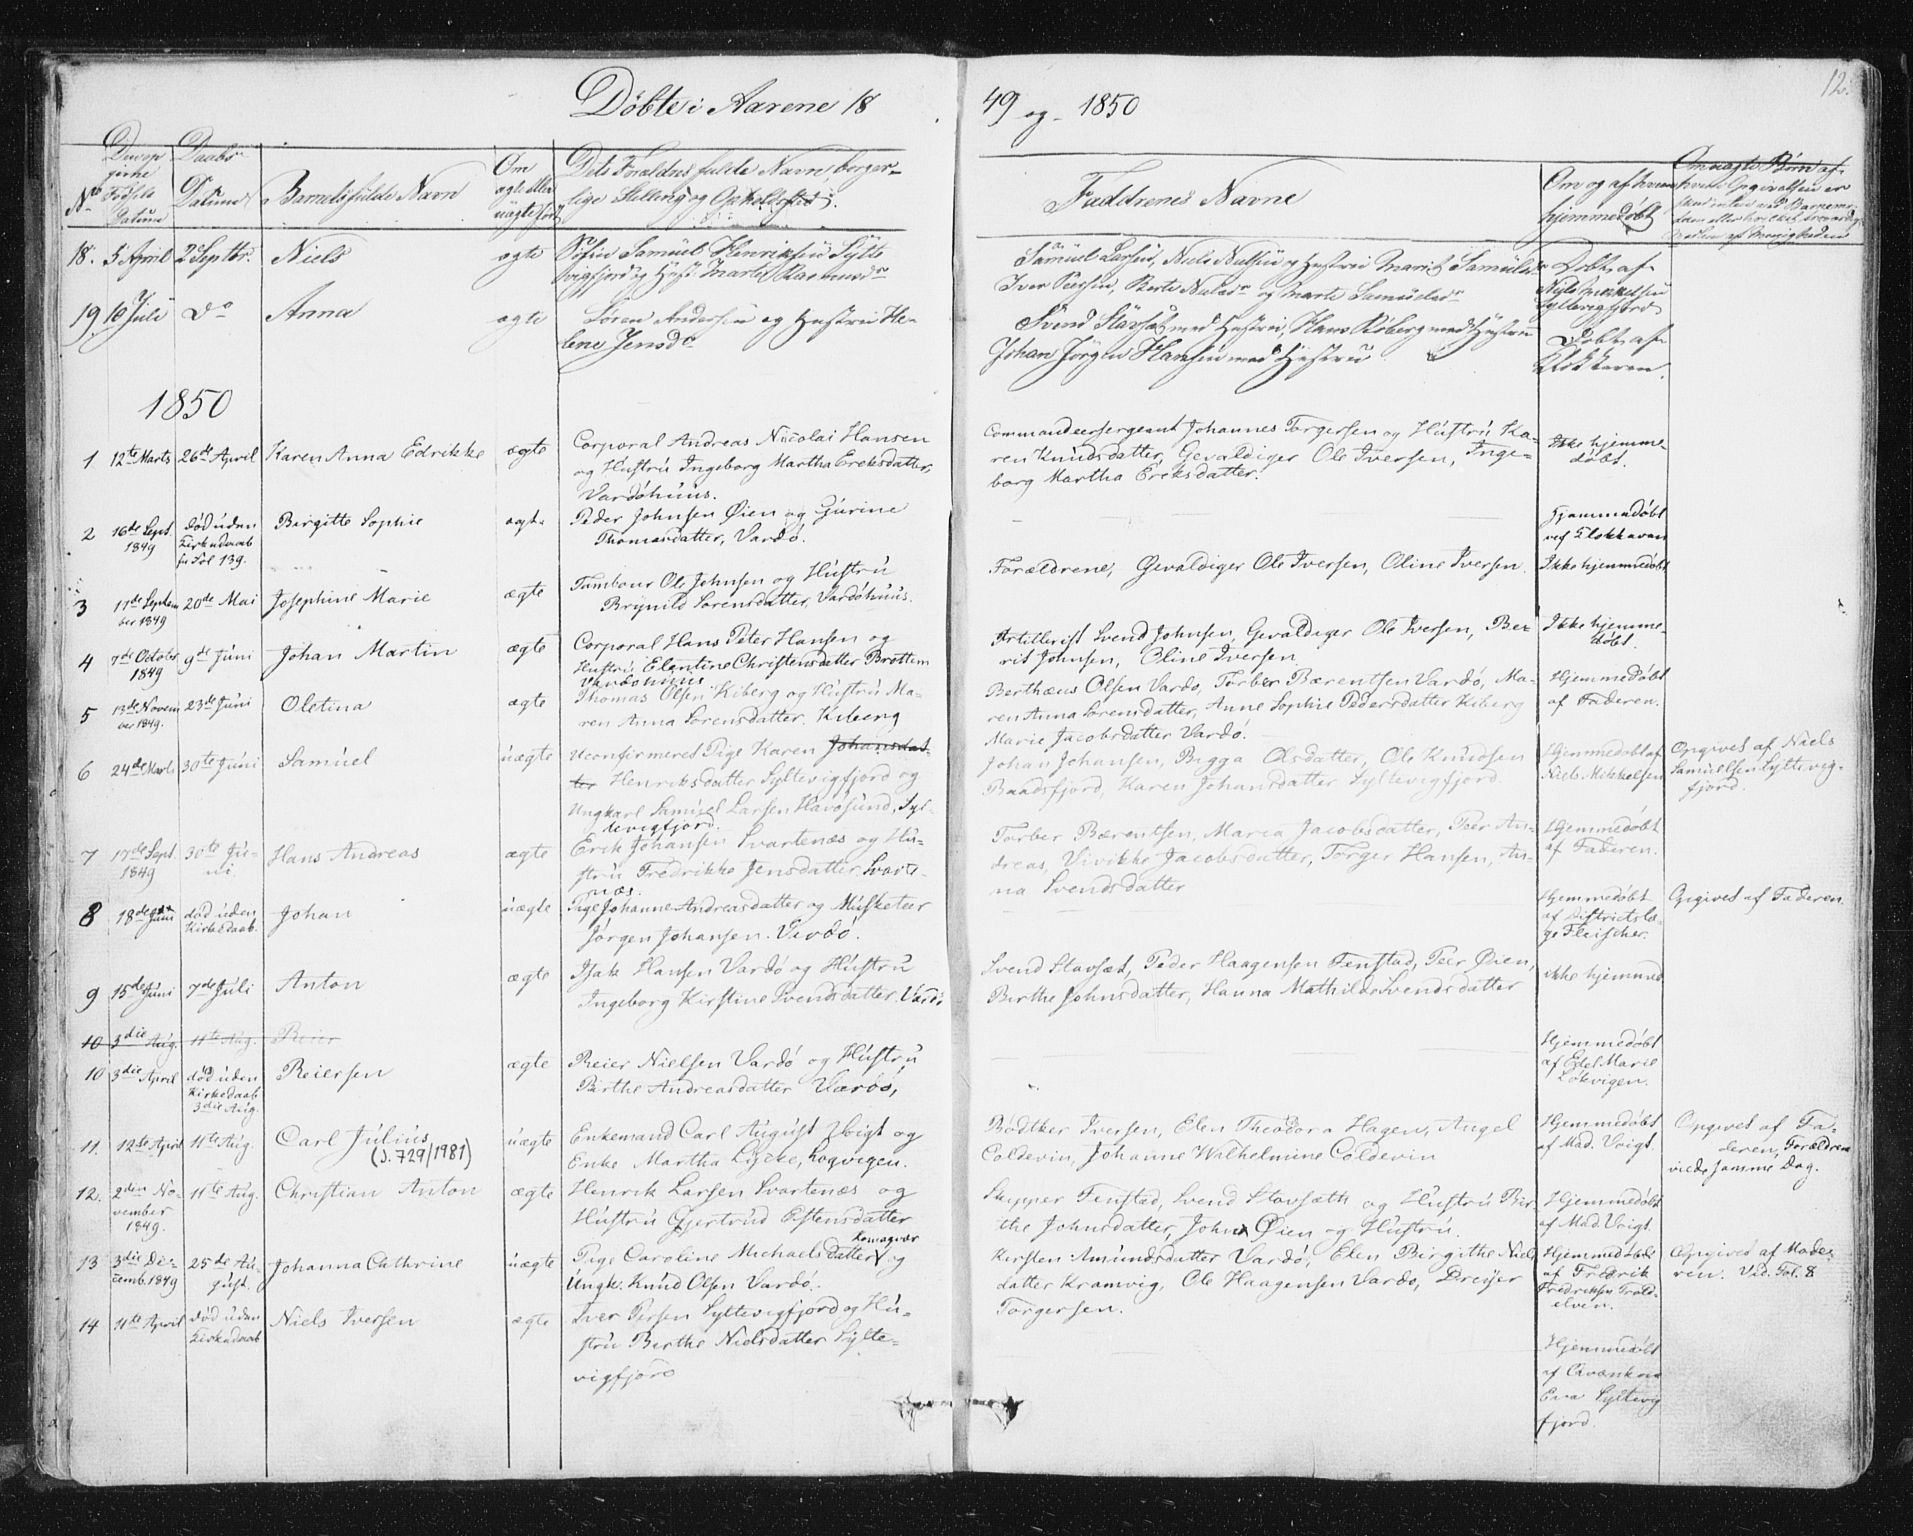 Døbte i Aarene 18 49 og 1850
12.
No
Fødsels Datum
Daabs Datum
Barnets fulde Navn
Om ægte eller uægte født
Dets Forældres fulde Navn borger-
lige Stilling og Opholdssted.
Faddrenes Navne
Om og af hvem
hjemmedøbt
18. 5 April 2 Septbr. Niels ægte Samuel Henriksen Sylte
vigfjord og Hust. Maret Rasmusdr
Samuel Larsen, Niels Nielsen og Hustru Marit Samuelsdr
Iver Persen, Berte Nielsdr og Marte Samuelsdr
Døbt af
Niels Mikkelsen
Syltevigfjord
19 10 Juli do Anna ægte Søren Andersen og Hustru He-
lene Jensdr
Svend Stavsæt med Hustru, Hans Kiberg med Hustru
Johan Jørgen Hansen med Hustru
Døbt af
Klokkeren.
1850
1 12te Marts 26de April Karen Anna Edrikke ægte Corporal Andreas Nicolai Hansen
og Hustru Ingeborg Martha Ereksdatter,
Vardöhuus.
Commandeersergeant Johannes Torgersen og Hustru Ka-
ren Knudsdatter, Gevaldiger Ole Iversen, Inge-
borg Martha Ereksdatter.
Ikke hjemme-
döbt.
2 16de Sept. 1849 död uden Kirkedaab Fol 139. Birgitte Sophie ægte Peder Johnsen Øien og Gurine
Thomasdatter, Vardö.
Hjemmedöbt
ved Klokkeren
3 17de Septem ber 1849 20de Mai Josephine Marie ægte Tambour Ole Johnsen og Hustru
Brynild Sorensdatter, Vardöhuus.
Forældrene, Gevaldiger Ole Iversen, Oline Iversen.
Ikke hjemmedöbt
4 7de Octobr 1849 9de Juni Johan Martin ægte Corporal Hans Peter Hansen og
Hustru Elentine Christensdatter Brottem
Vardöhuus
Artillerist Svend Johnsen, Gevaldiger Ole Iversen, Be-
rit Johnsen, Oline Iversen.
Ikke hjemme-
döbt.
5 13de Novem ber 1849. 23de Juni Oletina ægte Thomas Olsen Kiberg og Hustru Ma-
ren Anna Sorensdatter, Kiberg
Berthæus Olsen Vardö, Torber Bærentsen Vardö, Ma-
ren Anna Sorensdatter, Anne Sophie Pedersdatter Kiberg
Marie Jacobsdatter Vardö.
Hjemmedöbt
af Faderen.
6 24de Marts 30te Juni Samuel uægte Uconfirmeret Pige Karen Johansdat-
ter Henriksdatter Syltevigfjord og
Ungkarl Samuel Larsen Havösund, Syl-
tevigfjord.
Johan Johansen, Bigga Olsdatter, Ole Knudsen
Baadsfjord, Karen Johansdatter Syltevigfjord.
Hjemmedöbt af
Niels Mikkelsen
Opgivet af Niels
Samuelsen Syltevig-
fjord.
7 17de Sept. 1849 30te Ju- ni. Hans Andreas ægte Erik Johansen Svartenæs og Hu-
stru Fredrikke Jensdatter, Svarte-
næs.
Torber Bærentsen, Maria Jacobsdatter, Peer An-
dreas, Vivikke Jacobsdatter, Torger Hansen, An-
na Svendsdatter
Hjemmedöbt
af Faderen.
8 18de Juni död uden Kirkedaab. Johan uægte Pige Johanne Andreasdatter og Musketeer
Jörgen Johansen. Vardö.
Hjemmedöbt
af Districtslæ-
ge Fleischer.
Opgivet af Faderen
9 15de Juni 7de Juli Anton ægte Isak Hansen Vardö og Hustru
Ingeborg Kirstine Svendsdatter. Vardö
Svend Stavsæt, Peder Haagensen Fenstad, Peer Øien,
Birthe Johnsdatter, Hanna Mathilde Svendsdatter
ikke hjemmed
10 3die Aug. 11te Aug. Reier
10 3die April död uden Kirkedaab 3die Aug. Reiersen ægte Reier Nielsen Vardö og Hustru
Birthe Andreasdatter Vardö,
Hjemmedöbt
af Edel Marie
Lökvigen.
11. 12te April 11te Aug. Carl Julius uægte Enkemand Carl August Voigt og
(J. 729/1981) Enke Martha Lycke, Logvigen.
Bødtker Iversen, Elen Theodora Hagen, Angel
Coldevin, Johanne Wilhelmine Coldevin
Hjemmedöbt
af Mad. Voigt.
Opgivet af Fa-
deren, Forældrene
viede samme Dag.
12. 2den No- vember 1849. 11te Aug. Christian Anton ægte Henrik Larsen Svartenæs og
Hustru Gjertrud Estensdatter
Skipper Fenstad, Svend Stavsæth og Hustru Bir-
the Johnsdatter, John Øien og Hustru.
Hjemmedöbt
af Mad. Voigt.
13 3die De- cemb. 1849 25de Au- gust. Johanna Cathrine uægte Pige Caroline Michaelsdatter Komagvær og
Ungk. Knud Olsen Vardö.
Kirsten Amundsdatter Vardö, Elen Birgithe Niels
datter Kramvig, Ole Haagensen Vardö, Dreyer
Torgersen.
Hjemmedöbt
af Fredrik
Fredriksen Trold-
elven.
Opgivet af Mode-
ren. Vid. Fol. 8
14 11te April död uden Kirkedaab Niels Iversen ægte Iver Persen Syltevigfjord og Hu-
stru Birthe Nielsdatter Sylte-
vigfjord
Hjemmedöbt
af Qvænkone
Eva Syltevig
fjord.